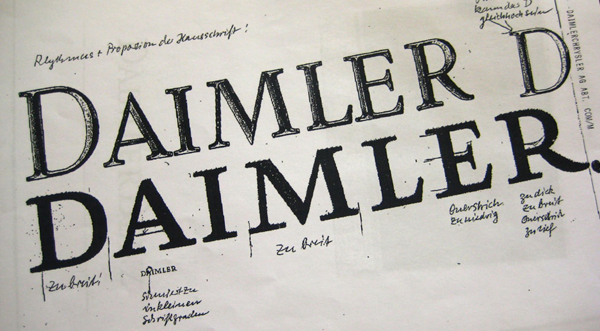 Rhythmus + Proportion der Hausschrift!
kann das D
gleichhoch sein
DAIMLER D
DAIMLERCHRYSLER AG ABT. COM/M
DAIMLER.
zu breit!
zu breit
Querstrich
zu niedrig
zu dick
zu breit
Querstrich
zu tief
DAIMLER
in kleinen
Schriftgraden